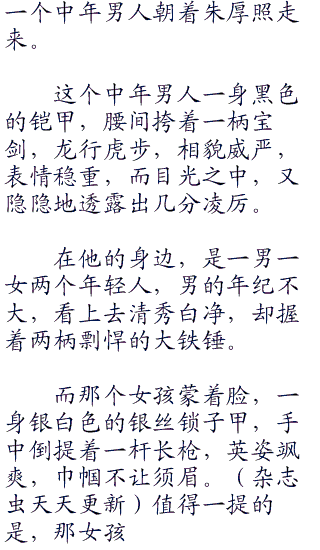 一个中年男人朝着朱厚照走
来。
这个中年男人一身黑色
的铠甲，腰间挎着一柄宝
剑，龙行虎步，相貌威严，
表情稳重，而目光之中，又
隐隐地透露出几分凌厉。
在他的身边，是一男一
女两个年轻人，男的年纪不
大，看上去清秀白净，却握
着两柄剽悍的大铁锤。
而那个女孩蒙着脸，一
身银白色的银丝锁子甲，手
中倒提着一杆长枪，英姿飒
爽，巾帼不让须眉。（杂志
虫天天更新）值得一提的
是，那女孩